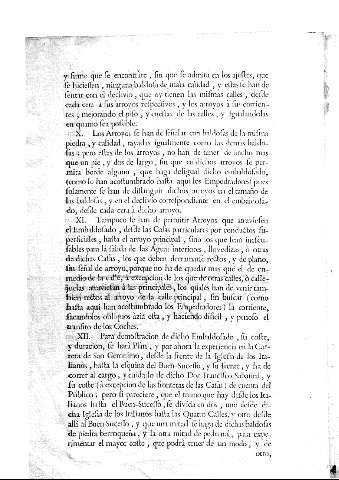 y firme que se encontrare, sin que se admita en los ajustes, que
se hiciessen, ninguna baldosa de mala calidad, y estas se han de
sentar con el declivio, que oy tienen las mismas calles, desde
cada cera à sus arroyos respectivos, y los arroyos à sus corrien-
tes; mejorando el piso, y cuestas de las calles, y igualandolas
en quanto sea possible.
X. Los Arroyos se han de señalar con baldosas de la misma
piedra, y calidad, rayadas igualmente como las demàs baldo-
sas; pero estas de los arroyos, no han de tener de ancho mas
que un pie, y dos de largo, sin que en dichos arroyos se per-
mita borde alguno, que haga desigual dicho embaldosado,
(como lo han acostumbrado hasta aqui los Empedradores) pues
solamente se han de distinguir dichos arroyos en el tamaño de
las baldosas, y en el declivio correspondiente en el embaldosa-
do, desde cada cera à dicho arroyo.
XI. Tampoco se han de permitir Arroyos que atraviessen
el Embaldosado, desde las Casas particulares por conductos su-
perficiales, hasta el arroyo principal, sino los que sean inescu-
sables para la salida de las Aguas interiores, llovedizas, y otras
de dichas Casas, los que deben derramarse rectos, y de plano,
sin señal de arroyo, porque no ha de quedar mas que el de en-
medio de la calle, à excepcion de los que de otras calles, ò calle-
juelas atraviessan à las principales, los quales han de venir tam-
bien rectos al arroyo de la calle principal, sin buscar (como
hasta aqui han acostumbrado los Empedradores) la corriente,
sacandolos obliquos àzia esta, y haciendo dificil, y penoso el
transito de los Coches.
XII. Para demostracion de dicho Embaldosado, su coste,
y duracion, se harà Plan, y por ahora la experiencia en la Car-
rera de San Geronimo, desde la frente de la Iglesia de los Ita-
lianos, hasta la esquina del Buen-Sucesso, y su frente, y ha de
correr al cargo, y cuidado de dicho Don Francisco Sabatini, y
su coste (à excepcion de las fronteras de las Casas) de cuenta del
Publico; pero si pareciere, que el tramo que hay desde los Ita-
lianos hasta el Buen-Sucesso, se divida en dos, uno desde di-
cha Iglesia de los Italianos hasta las Quatro Calles, y otro desde
allì al Buen-Sucesso, y que una mitad se haga de dichas baldosas
de piedra berroqueña, y la otra mitad de pedernal, para expe-
rimentar el mayor coste, que podrà tener de un modo, y de
otro,